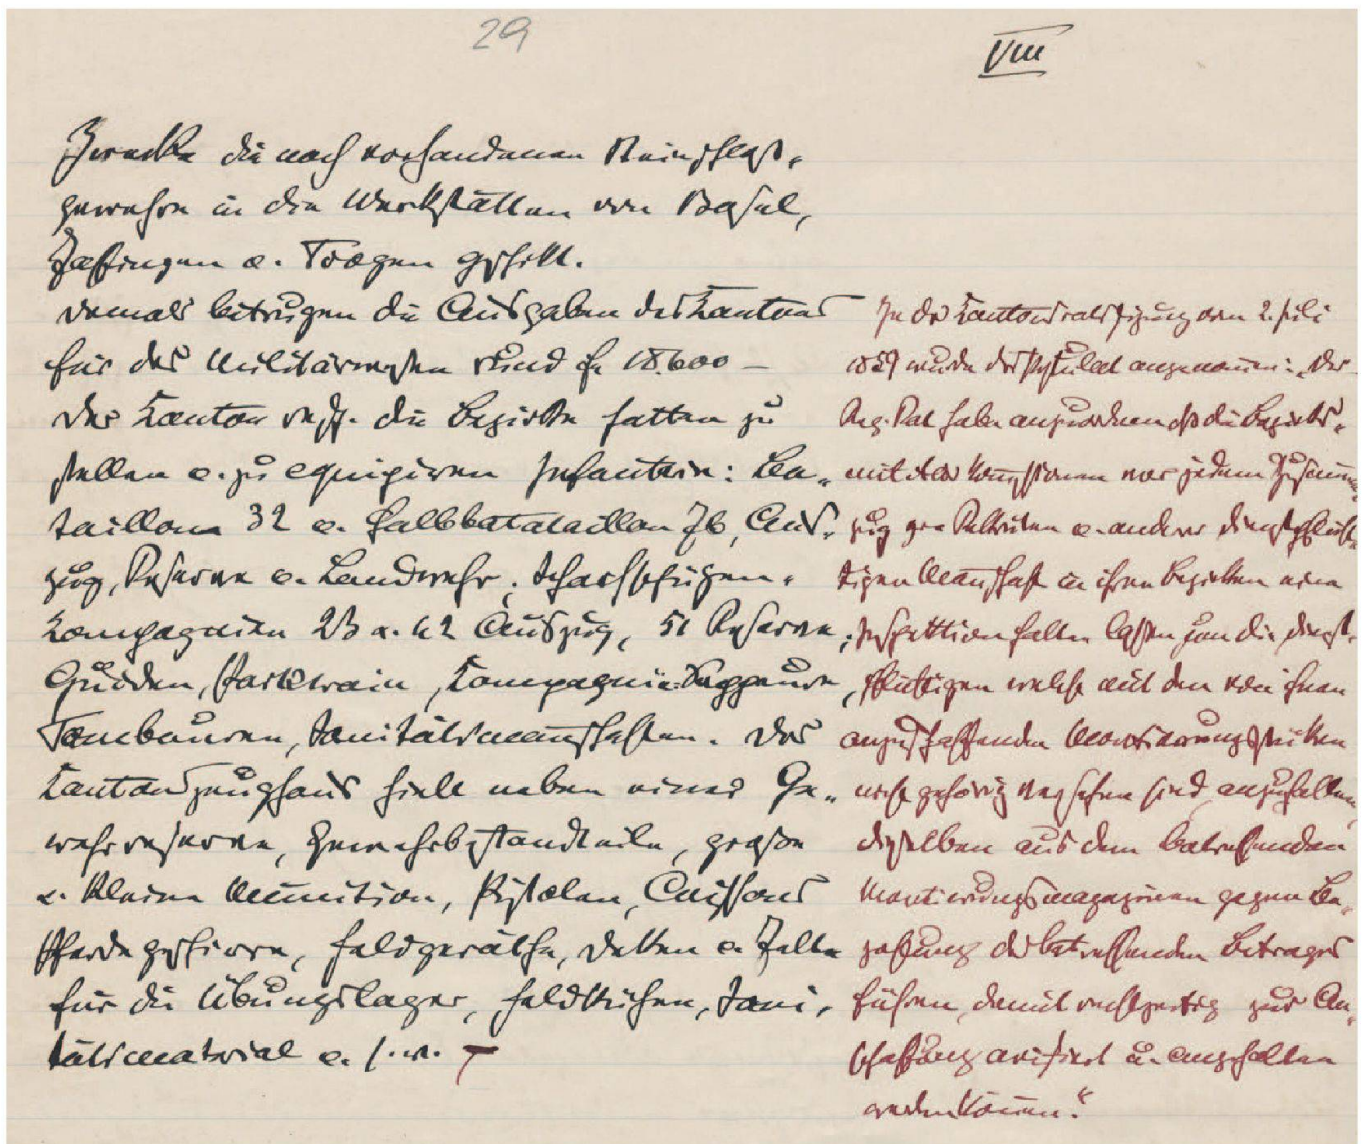 29
VIII
Zwecke die noch vorhandenen Steinschloß-
gewehre in die Werkstätten von Basel,
Zofingen u. Trogen geschickt.
Damals betrugen die Ausgaben des Kantons
für das Militärwesen rund fr 18.600 –
Der Kanton resp. die Bezirke hatten zu
stellen u. zu equipieren Infanterie: Ba-
taillone 32 u. Halbbatataillon 76, Aus-
zug, Reserve u. Landwehr, Scharfschützen-
Kompagnien 23 u. 42 Auszug, 51 Reserve,
Guiden, Parktrain, Kompagnie Sappeure,
Tambouren, Sanitätsmannschaften. Das
Kantonszeughaus hielt neben einer Ge-
wehrreserve, Gewehrbestandteile, große
u. kleine Munition, Pistolen, Caissons
Pferdegeschirre, Feldgeräthe, Decken u. Zelte
für die Übungslager, Feldküchen, Sani-
tätsmaterial u. s. w.
In der Kantonsratssitzung vom 2. Juli
1859 wurde das Postulat angenommen: „Der
Reg. Rat habe anzuordnen daß die Bezirks-
militär Kommissionen vor jedem Zusammen-
zug der Rekruten u. anderer dienstpflich-
tigen Mannschaft in ihren Bezirken eine
Inspektion halten lassen um die dienst-
pflichtigen welche mit den von ihnen
anzuschaffenden Montierungsstücken
nicht gehörig versehen sind, anzuhalten,
dieselben aus dem betreffenden
Montirungsmagazinen gegen Be-
zahlung des betreffenden Betrages
führen, damit rechtzeitig zur An-
schaffung avisiert u. angehalten
werden können.“